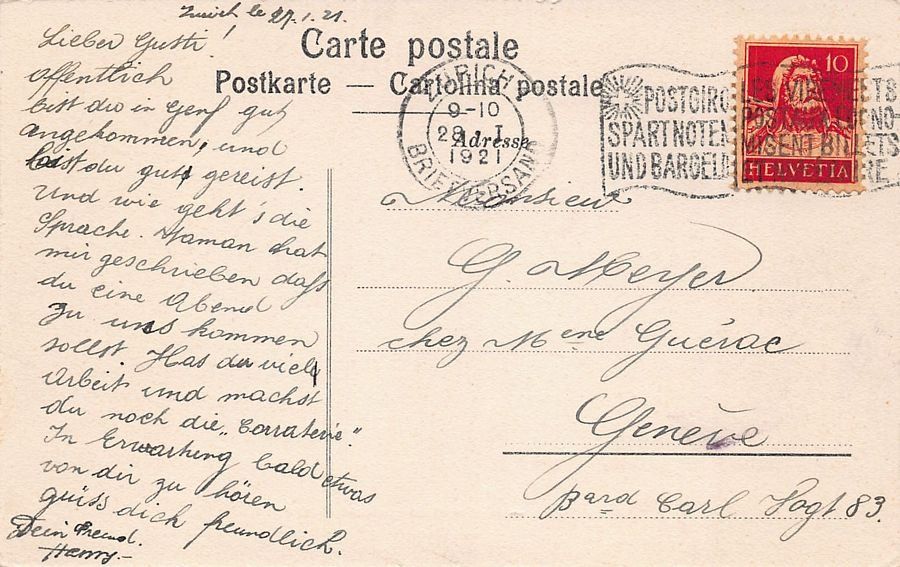 Zürich le 27.1.21.
Lieber Gusti!
offentlich
bist du in Genf gut
angekommen, und
bist du gut gereist.
Und wie geht's die
Sprache. Maman hat
mir geschrieben dass
du eine Abend
zu uns kommen
sollst. Has du viel
Arbeit und machst
du noch die „Corraterie".
In Erwarting bald etwas
von dir zu hören
grüss dich freundlich.
Dein Freund.
Henry.-
Carte postale
Postkarte — Cartolina postale
Adresse
ZÜRICH
9-10
28.I.
1921
BRIEFVERSAND
POSTGIRO
SPART NOTEN
UND BARGELD
10
HELVETIA
Monsieur
G. Meyer
chez Mme Guérac
Genève
Bard Carl Vogt 83.